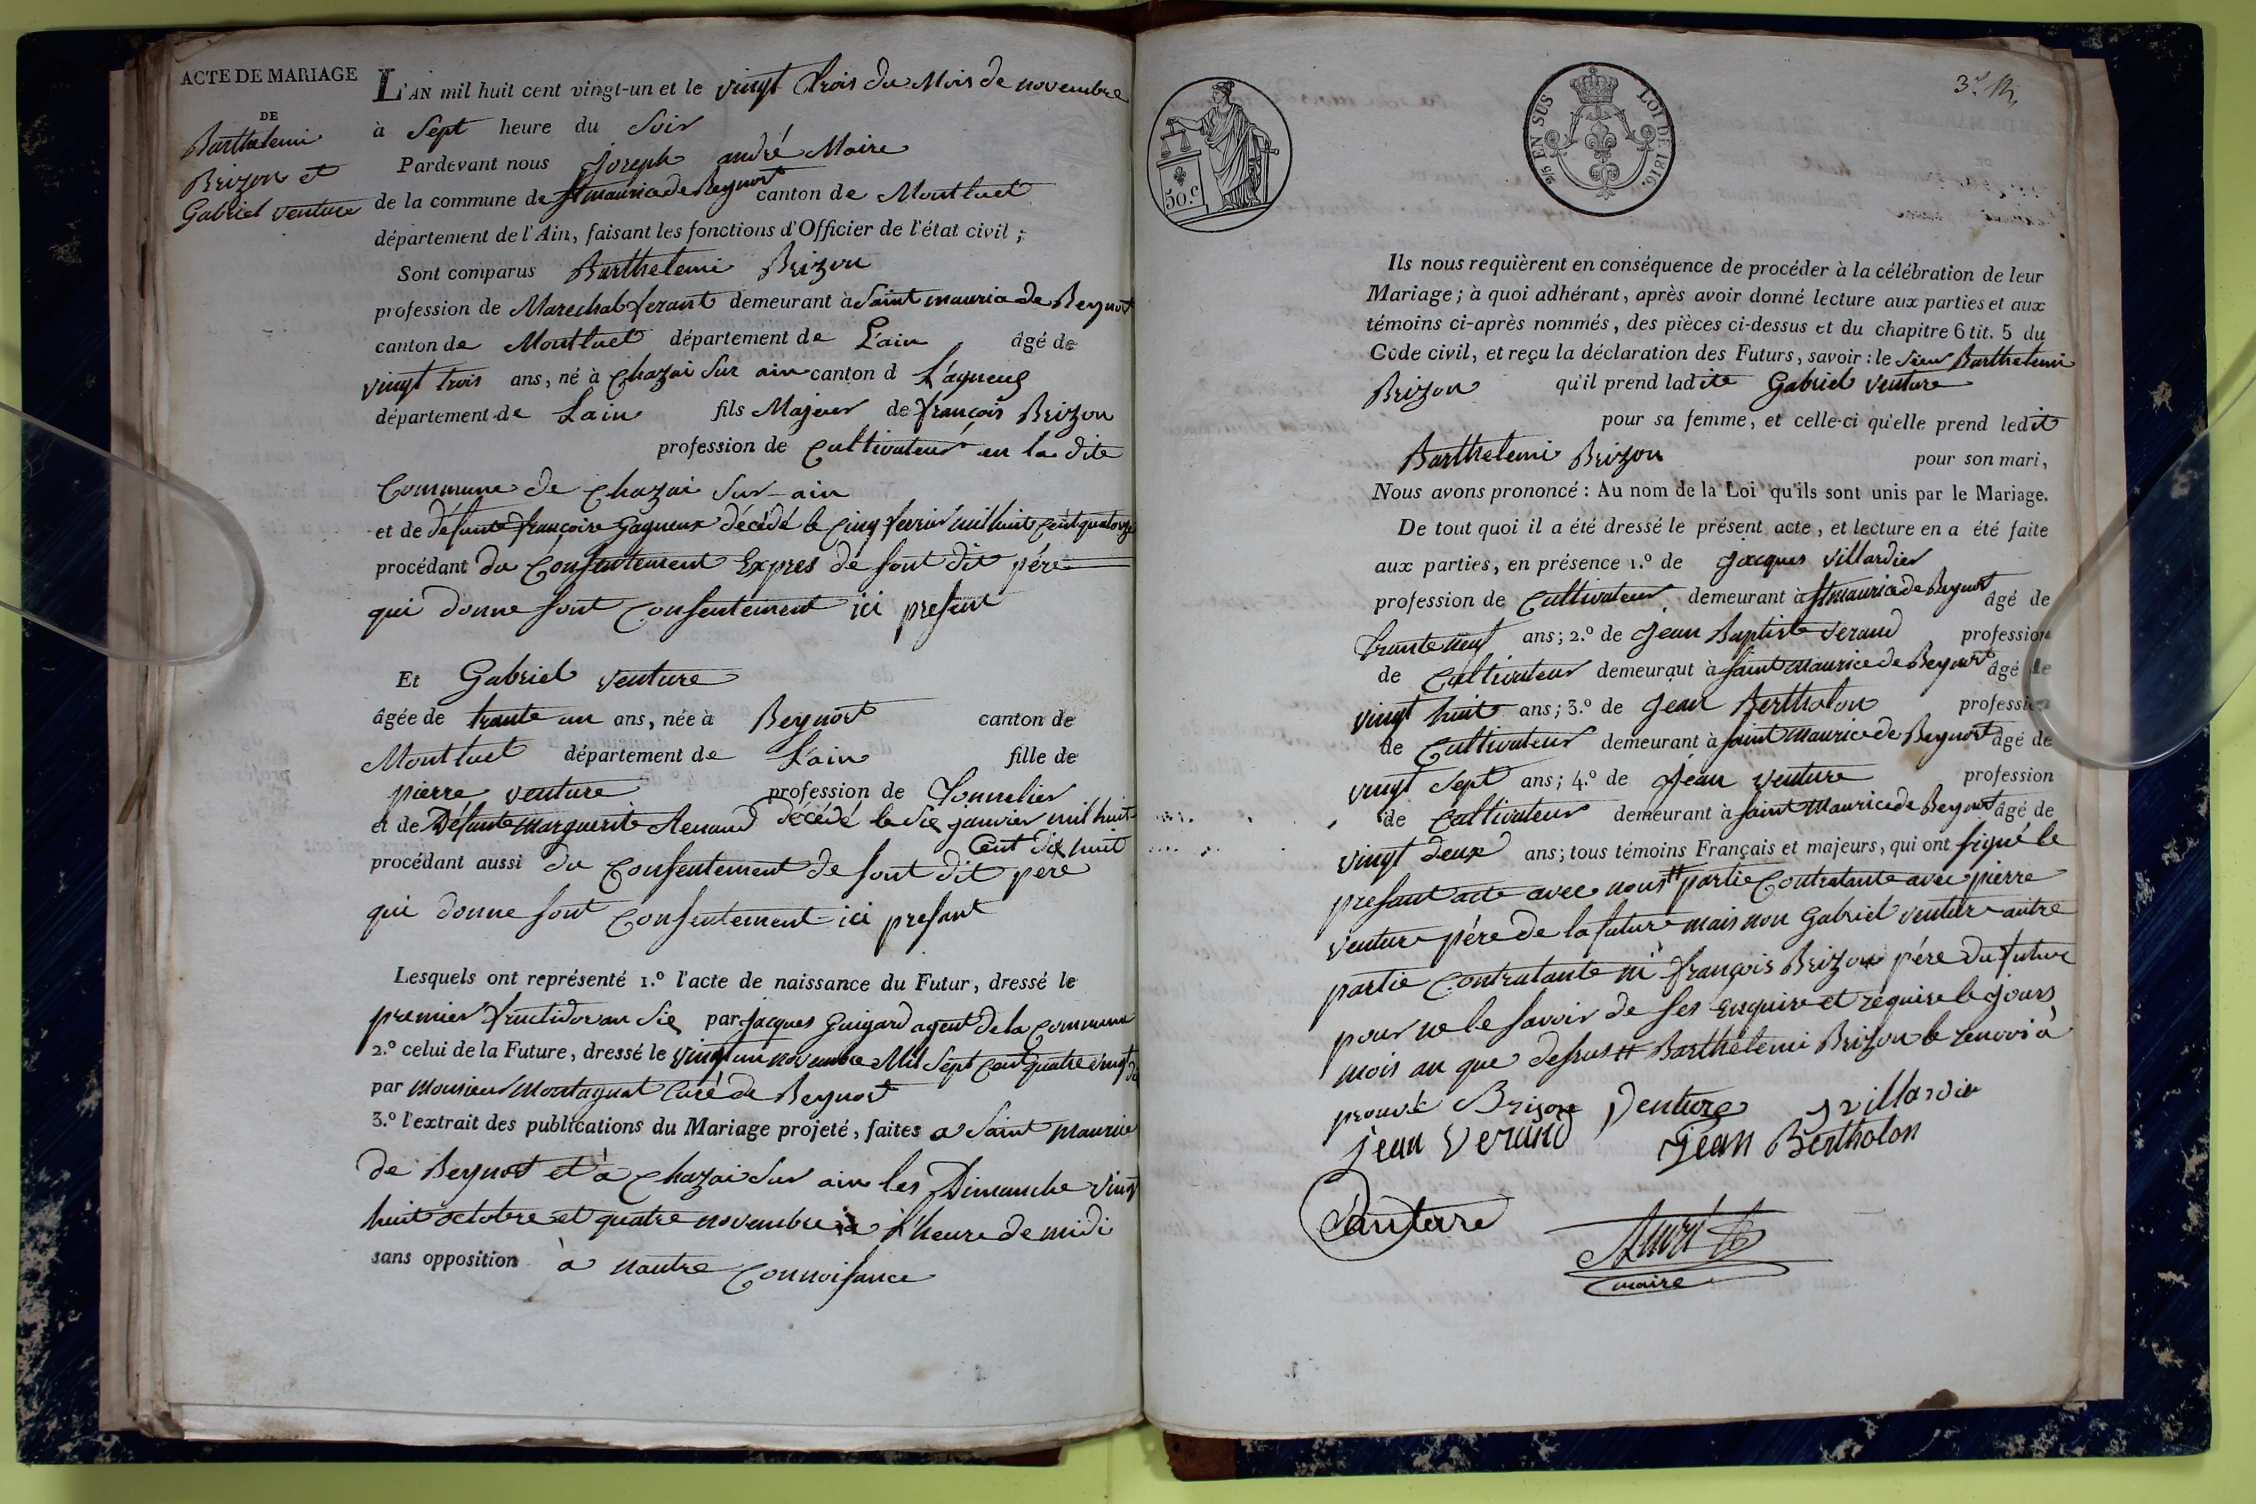 ACTE DE MARIAGE
DE
Barthelemi
Brizon et
Gabriel venture
L'AN mil huit cent vingt-un et le vingt trois du Mois de novembre
à Sept heure du Soir
Pardevant nous joseph andré Maire
de la commune de St maurice de Beynost canton de Montluel
département de l'Ain, faisant les fonctions d'Officier de l'état civil ;
Sont comparus Barthelemi Brizon
profession de Marechal ferant demeurant à Saint maurice de Beynost
canton de Montluel département de L'ain âgé de
vingt trois ans, né à Chazai Sur ain canton d Lagneug
département de Lain fils Majeur de françois Brizon
profession de Cultivateur en la dite
Commune de Chazai Sur-ain
et de défunte françoise Gagneux décédé le Cinq fevrier mil huit Cent quatorze
procédant du Consentement Expres de sont dit pére
qui donne sont Consentement ici presant
Et Gabriel venture
âgée de trante un ans, née à Beynost canton de
Montluel département de Lain fille de
pierre venture profession de Tonnelier
et de Défunte marguerite Renaud décédé le Six janvier mil huit
Cent dix huit
procédant aussi du Consentement de sont dit pere
qui donne sont Consentement ici presant
Lesquels ont représenté 1.º l'acte de naissance du Futur, dressé le
premier fructidor an Six par jacques Guigard agent de la Commune
2.º celui de la Future, dressé le vingt un novembre Mil Sept Cent quatre vingt dix
par Monsieur Montagnat Curé de Beynost
3.º l'extrait des publications du Mariage projeté, faites a Saint maurice
de Beynost et à Chazai Sur ain les Dimanche vingt
huit octobre et quatre novembre à l'heure de midi
sans opposition à nautre Connoisance
50.c
95 EN SUS
LOI DE 1816.
Ils nous requièrent en conséquence de procéder à la célébration de leur
Mariage ; à quoi adhérant, après avoir donné lecture aux parties et aux
témoins ci-après nommés, des pièces ci-dessus et du chapitre 6 tit. 5 du
Code civil, et reçu la déclaration des Futurs, savoir : le Sieur Barthelemi
Brizon qu'il prend ladite Gabriel venture
pour sa femme, et celle-ci qu'elle prend ledit
Barthelemi Brizon pour son mari,
Nous avons prononcé : Au nom de la Loi qu'ils sont unis par le Mariage.
De tout quoi il a été dressé le présent acte, et lecture en a été faite
aux parties, en présence 1.º de jacques villardier
profession de Cultivateur demeurant à St maurice de Beynost âgé de
trante neuf ans ; 2.º de jean Baptiste verand profession
de Cultivateur demeurant à saint maurice de Beynost âgé de
vingt huit ans ; 3.º de jean Bertholon profession
de Cultivateur demeurant à saint maurice de Beynost âgé de
vingt sept ans ; 4.º de jean venture profession
de Cultivateur demeurant à saint Maurice de Beynost âgé de
vingt deux ans ; tous témoins Français et majeurs, qui ont signé le
presant acte avec nous # partie Contratante avec pierre
venture pére de la future mais non Gabriel venture autre
partie Contratante ni françois Brizon pére du future
pour ne le savoir de ses enquire et require le jours
mois an que dessus # Barthelemi Brizon le renvoi à
prouvé Brizon venture J villardier
jean verand jean Bertholon
Janterre
André
maire